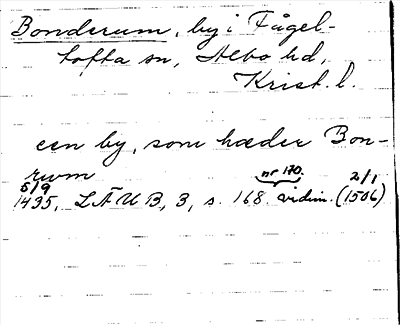 Bonderum, by i Fågel-
tofta sn, Albo hd,
Krist. l.
een by, som hæder Bon-
rwm
5/9 nr 170. 2/1
1435, LÄUB, 3, s. 168. vidim. (1506)